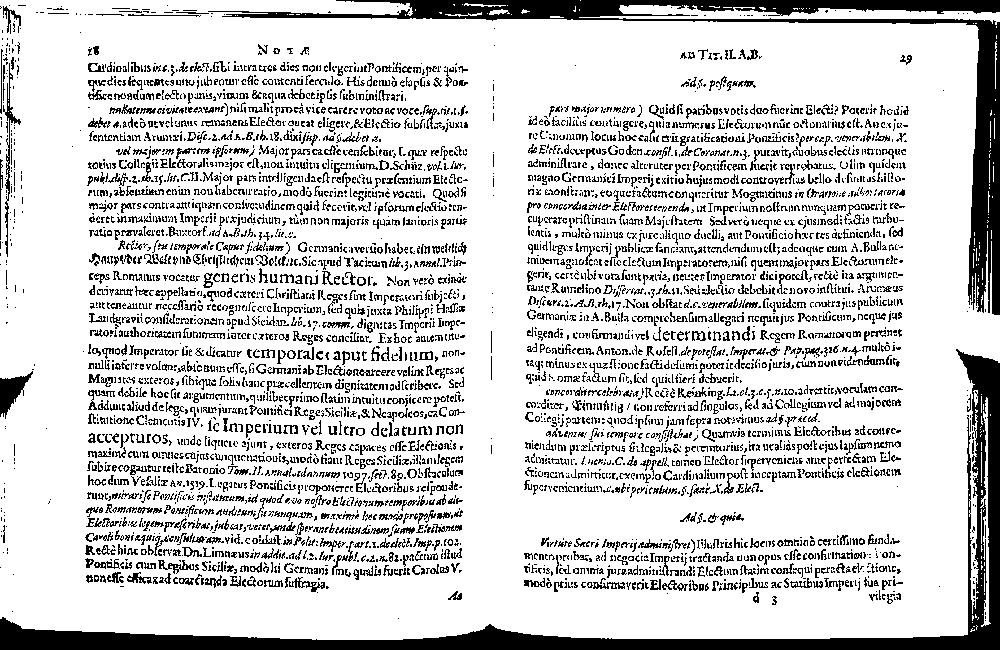 28 NOTÆ
Cardinalibus in c. 3. de elect. sibi intra tres dies non elegerint Pontificem, per quin-
que dies sequentes uno jubentur esse contenti ferculo. His demò elapsis & Pon-
tifice nondum electo panis, vinum & aqua debet ipsis subministrari.
nisi mali pro eâ vice carere voto ace, sup. tit. 1. §.
debet a, adeò ut vel unus remanens Elector queat eligere, & Electio subsistat, juxta
sententiam Arumæi. Disc. 2. ad A. B. th. 18. dixi sup. ad §. debet a.
vel majorem partem ipsorum) Major pars ea esse censebitur, I. quæ respectu
totius Collegij Electoralis major est, non intuitu eligentium. D. Schüz. vol. 1. Iur.
publ. disp. 2. th. 15. lit. C. II. Major pars intelligenda est respectu præsentium Electo-
rum, absentium enim non habetur ratio, modò fuerint legitimè vocati. Quodsi
major pars contra antiquam consvetudinem quid fecerit, vel ipsorum electio ten-
deret in maximum Imperii præjudicium, tùm non majoris quam sanioris partis
ratio prævaleret. Buxtorf. ad A. B. th. 34. lit. c.
Rector, seu temporale Caput fidelium) Germanica versio habet, ein weltlich
Haupt der Welt und Christlichem Volck ic. Sic apud Tacitum lib. 3. Annal. Prin-
ceps Romanus vocatur generis humani Rector. Non verò exinde
derivatur hæc appellatio, quod cæteri Christiani Reges sint Imperatori subjecti,
aut teneantur necessariò recognoscere Imperium, sed quia juxta Philippi Hassiæ
Landgravii considerationem apud Sleidan. lib. 17. comm. dignitas Imperii Impe-
ratori authoritatem summam inter cæteros Reges conciliat. Ex hoc autem titu-
lo, quod Imperator sit & dicatur temporale caput fidelium, non-
nulli inferre volunt, absonum esse, si Germani ab Electione arcere velint Reges ac
Magnates exteros, sibique solis hanc præcellentem dignitatem adscribere. Sed
quam debile hoc sit argumentum, quilibet primo statim intuitu conjicere potest.
Addunt aliud de lege, quam jurant Pontifici Reges Siciliæ, & Neapoleos, ea Con-
stitutione Clementis IV. se Imperium vel ultro delatum non
accepturos, unde liquere ajunt, exteros Reges capaces esse Electionis,
maximè cum omnes ejus cunque nationis, modò fiant Reges Siciliæ, illam legem
subire cogantur teste Baronio Tom. II. annal. ad annum 1097. sect. 89. Ob seculum
hoc dum Vefaliæ An. 1519. Legatus Pontificis proponeret Electoribus responde-
runt, mirari se Pontificis institutum, id quod ævo nostro Electionum temporibus ab ali-
quo Romanorum Pontificum auditum sit nunquam, maximè hoc modo propositum, ut
Electoribus legem præscribat, jubeat, vetet,
vid. eosdat in Polit. Imper. part. 2. de elect. Imp. p. 102.
Rectè hinc observat Dn. Limnæus in addit. ad l. 2. Iur. publ. c. 2. n. 82. pactum istud
Pontificis cum Regibus Siciliæ, modò hi Germani sint, qualis fuerit Carolus V.
non esse efficax ad coarctanda Electorum suffragia.
Ad
AD TIT. II. A. B. 29
Ad §. postquam.
pars major numero) Quid si paribus votis duo fuerint Electi? Poterit hodiè
id eò facilius contingere, quia numerus Electorum nùc octonarius est. An ex ju-
re Canonum locus hoc casu erit gratificationi Pontificis? per cap. venerabilem. X.
de Elect. deceptus Goden. consil. 1. de Coronat. n. 3. putavit, duobus electis utrumque
administrare, donec alteruter per Pontificem fuerit reprobatus. Olim quidem
magno Germanici Imperij exitio hujusmodi controversias bello definitas histo-
riæ monstrant, eoque factum conqueritur Moguntinus in Oratione adhortatoria
pro concordia inter Electores tenenda, ut Imperium nostrum nunquam potuerit re-
cuperare pristinam suam Majestatem. Sed verò neque ex ejusmodi factis turbu-
lentis, multò minus ex jure aliquo duelli, aut Pontificio hoc res definienda, sed
quid leges Imperij publicæ sanciant, attendendum est; adeoque cum A. Bulla ne-
minem agnoscat esse electum Imperatorem, nisi quem major pars Electorum ele-
gerit, certè ubi vota sunt paria, neuter Imperator dici potest, rectè ita argumen-
tante Rumelino Dissertat. 3. th. 11. Sed electio debebit de novo institui. Arumæus
Discurs. 2. A. B. th. 17. Non obstat d. c. venerabilem. siquidem contra jus publicum
Germaniæ in A. Bulla comprehensum allegari nequit jus Pontificum, neque jus
eligendi, confirmandi vel determinandi Regem Romanorum pertinet
ad Pontificem. Anton. de Rosell. de potestat. Imperat. & Pap. pag. 326. n. 4. multò i-
taq; minus ex quæstione facti desumi poterit decisio juris, cum non videndum sit,
quid Romæ factum sit, sed quid fieri debuerit.
concorditer celebrata) Rectè Reinking. l. 1. cl. 3. c. 5. n. 10. advertit, voculam con-
corditer, Einmütig / non referri ad singulos, sed ad Collegium vel ad majorem
Collegij partem: quod ipsum jam supra notavimus ad §. præced.
Quamvis terminus Electoribus ad conve-
niendum præscriptus sit legalis & peremtorius, ita ut alias post ejus lapsum nemo
admittatur. tamen Elector superveniens ante perfectam Ele-
ctionem admittitur, exemplo Cardinalium post inceptam Pontificis electionem
supervenientium. c. ubi periculum. §. sanè. X. de Elect.
Ad §. & quia.
Virtute Sacri Imperij administret) Illustris hic locus omninò certissimo funda-
mento probat, ad negocia Imperij tractanda nun opus esse confirmatione Pon-
tificis, sed omnia jura administrandi Electum statim consequi peractâ electione,
modò prius confirmaverit Electoribus Principibus ac Statibus Imperij sua pri-
d 3 vilegia